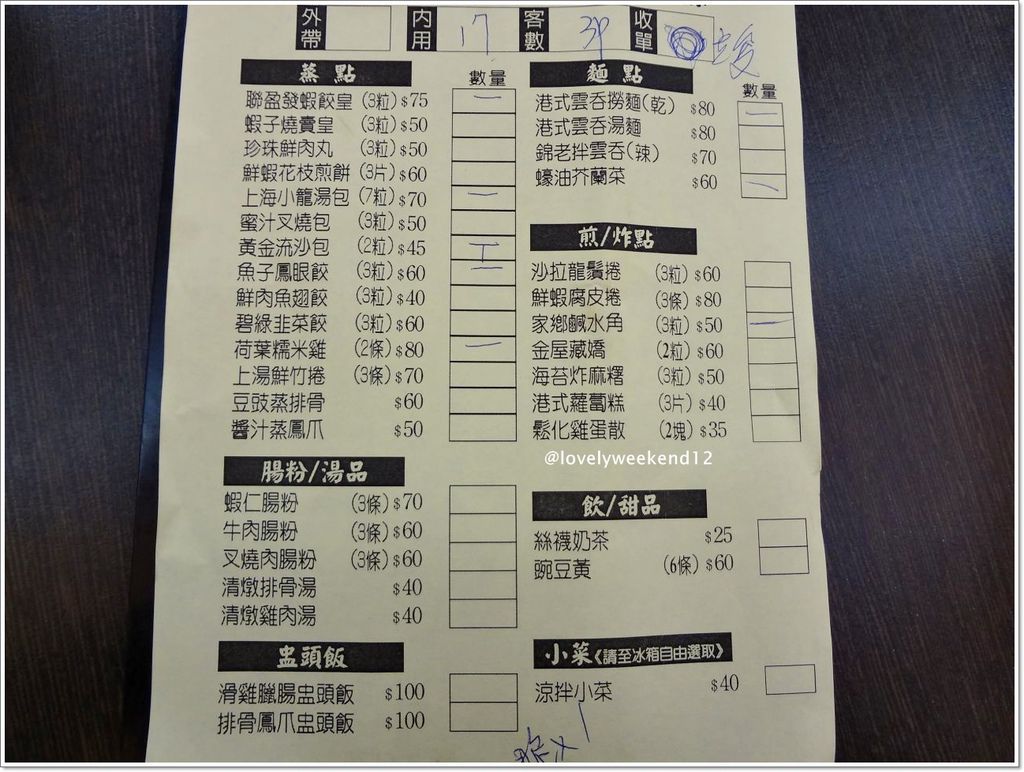 外帶 內用 17 客數 3P 收單
蒸點 數量
聯盈發蝦餃皇 (3粒) $75 一
蝦子燒賣皇 (3粒) $50
珍珠鮮肉丸 (3粒) $50
鮮蝦花枝煎餅 (3片) $60
上海小籠湯包 (7粒) $70 一
蜜汁叉燒包 (3粒) $50
黃金流沙包 (2粒) $45 T
魚子鳳眼餃 (3粒) $60 一
鮮肉魚翅餃 (3粒) $40
碧綠韭菜餃 (3粒) $60
荷葉糯米雞 (2條) $80 一
上湯鮮竹捲 (3條) $70
豆豉蒸排骨 $60
醬汁蒸鳳爪 $50
腸粉/湯品
蝦仁腸粉 (3條) $70
牛肉腸粉 (3條) $60
叉燒肉腸粉 (3條) $60
清燉排骨湯 $40
清燉雞肉湯 $40
盅頭飯
滑雞臘腸盅頭飯 $100
排骨鳳爪盅頭飯 $100
麵點 數量
港式雲吞撈麵(乾) $80 一
港式雲吞湯麵 $80
錦老拌雲吞(辣) $70
蠔油芥蘭菜 $60 一
煎/炸點
沙拉龍鬚捲 (3粒) $60
鮮蝦腐皮捲 (3條) $80
家鄉鹹水角 (3粒) $50 一
金屋藏嬌 (2粒) $60
海苔炸麻糬 (3粒) $50
港式蘿蔔糕 (3片) $40
鬆化雞蛋散 (2塊) $35
@lovelyweekend12
飲/甜品
絲襪奶茶 $25
豌豆黃 (6條) $60
小菜《請至冰箱自由選取》
涼拌小菜 $40